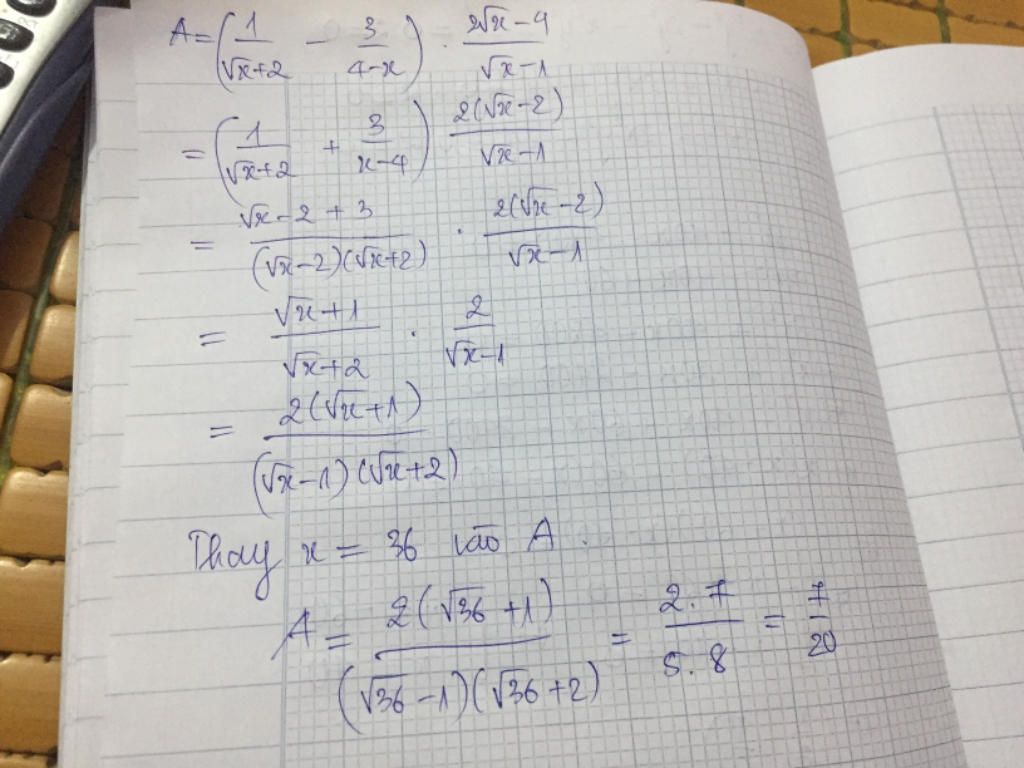 A = (1/(√x+2) − 3/(4−x)) · (2√x−4)/(√x−1)
= (1/(√x+2) + 3/(x−4)) 2(√x−2)/(√x−1)
= (√x−2+3)/((√x−2)(√x+2)) · 2(√x−2)/(√x−1)
= (√x+1)/(√x+2) · 2/(√x−1)
= 2(√x+1)/((√x−1)(√x+2))
Thay x = 36 vào A.
A = 2(√36+1)/((√36−1)(√36+2)) = 2.7/5.8 = 7/20